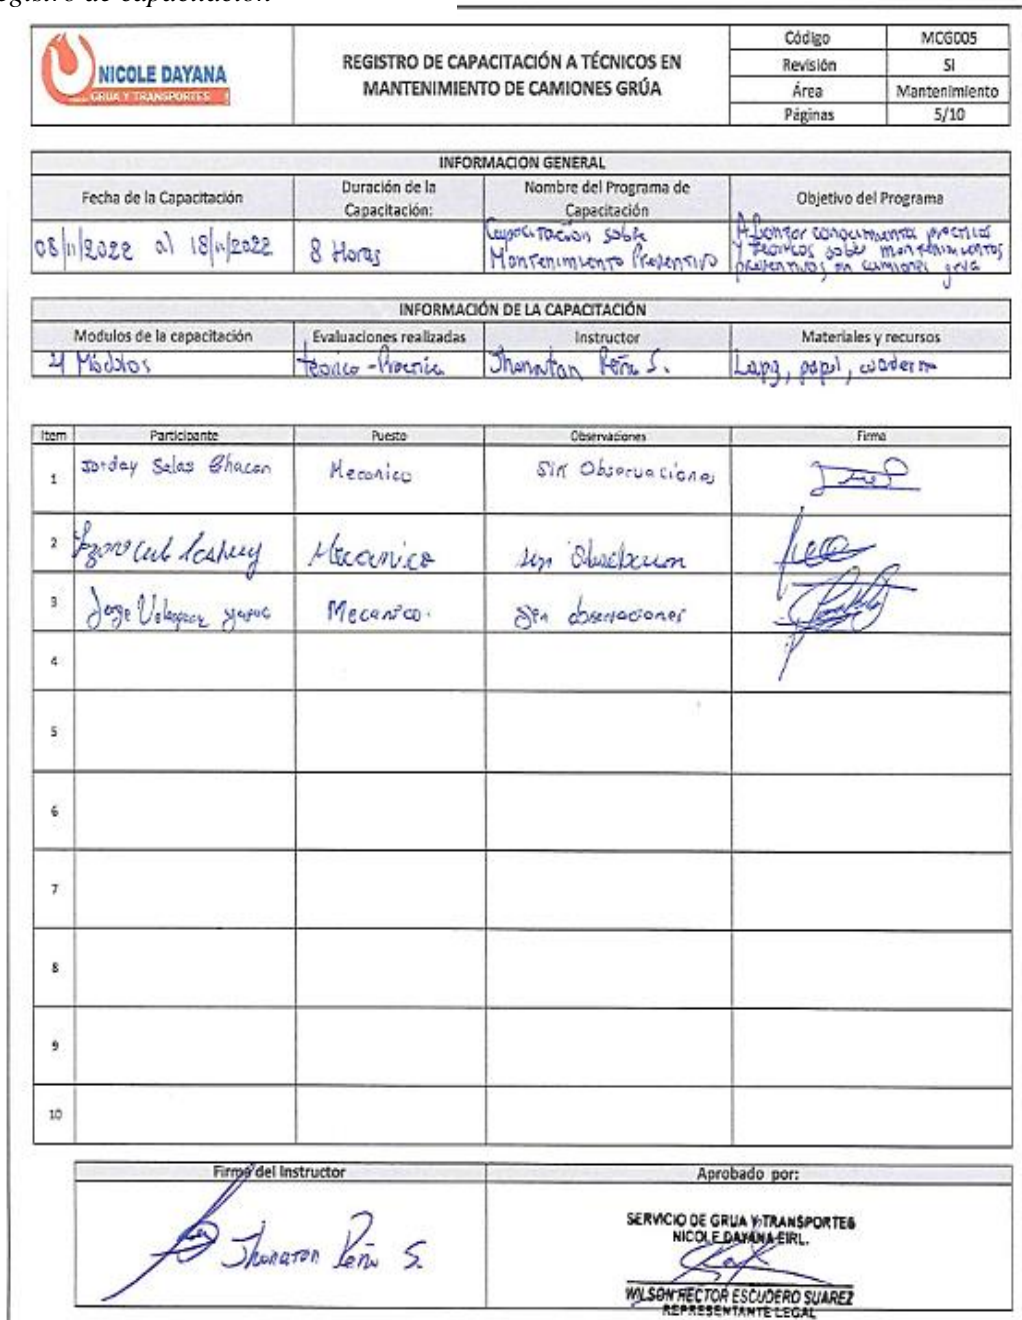 registro de capacitación
NICOLE DAYANA
GRUA Y TRANSPORTES
REGISTRO DE CAPACITACIÓN A TÉCNICOS EN
MANTENIMIENTO DE CAMIONES GRÚA
Código MCG005
Revisión SI
Área Mantenimiento
Páginas 5/10
INFORMACION GENERAL
Fecha de la Capacitación
Duración de la
Capacitación:
Nombre del Programa de
Capacitación
Objetivo del Programa
08/11/2022 al 18/11/2022
8 Horas
Capacitación sobre
Mantenimiento Preventivo
conocimientos practicos
y teoricos sobre mantenimientos
preventivos en camiones grua
INFORMACIÓN DE LA CAPACITACIÓN
Modulos de la capacitación Evaluaciones realizadas Instructor Materiales y recursos
4 Módulos Teorico - Practica Jhonatan Peña S. Lapiz, papel, cuaderno
Item Participante Puesto Observaciones Firma
1 Jorday Salas Chacon Mecanico Sin Observaciones
2 Mecanico
3 Jorge Mecanico. Sin observaciones
4
5
6
7
8
9
10
Firma del Instructor Aprobado por:
Jhonatan Peña S.
SERVICIO DE GRUA Y TRANSPORTES
NICOLE DAYANA EIRL.
WILSON HECTOR ESCUDERO SUAREZ
REPRESENTANTE LEGAL